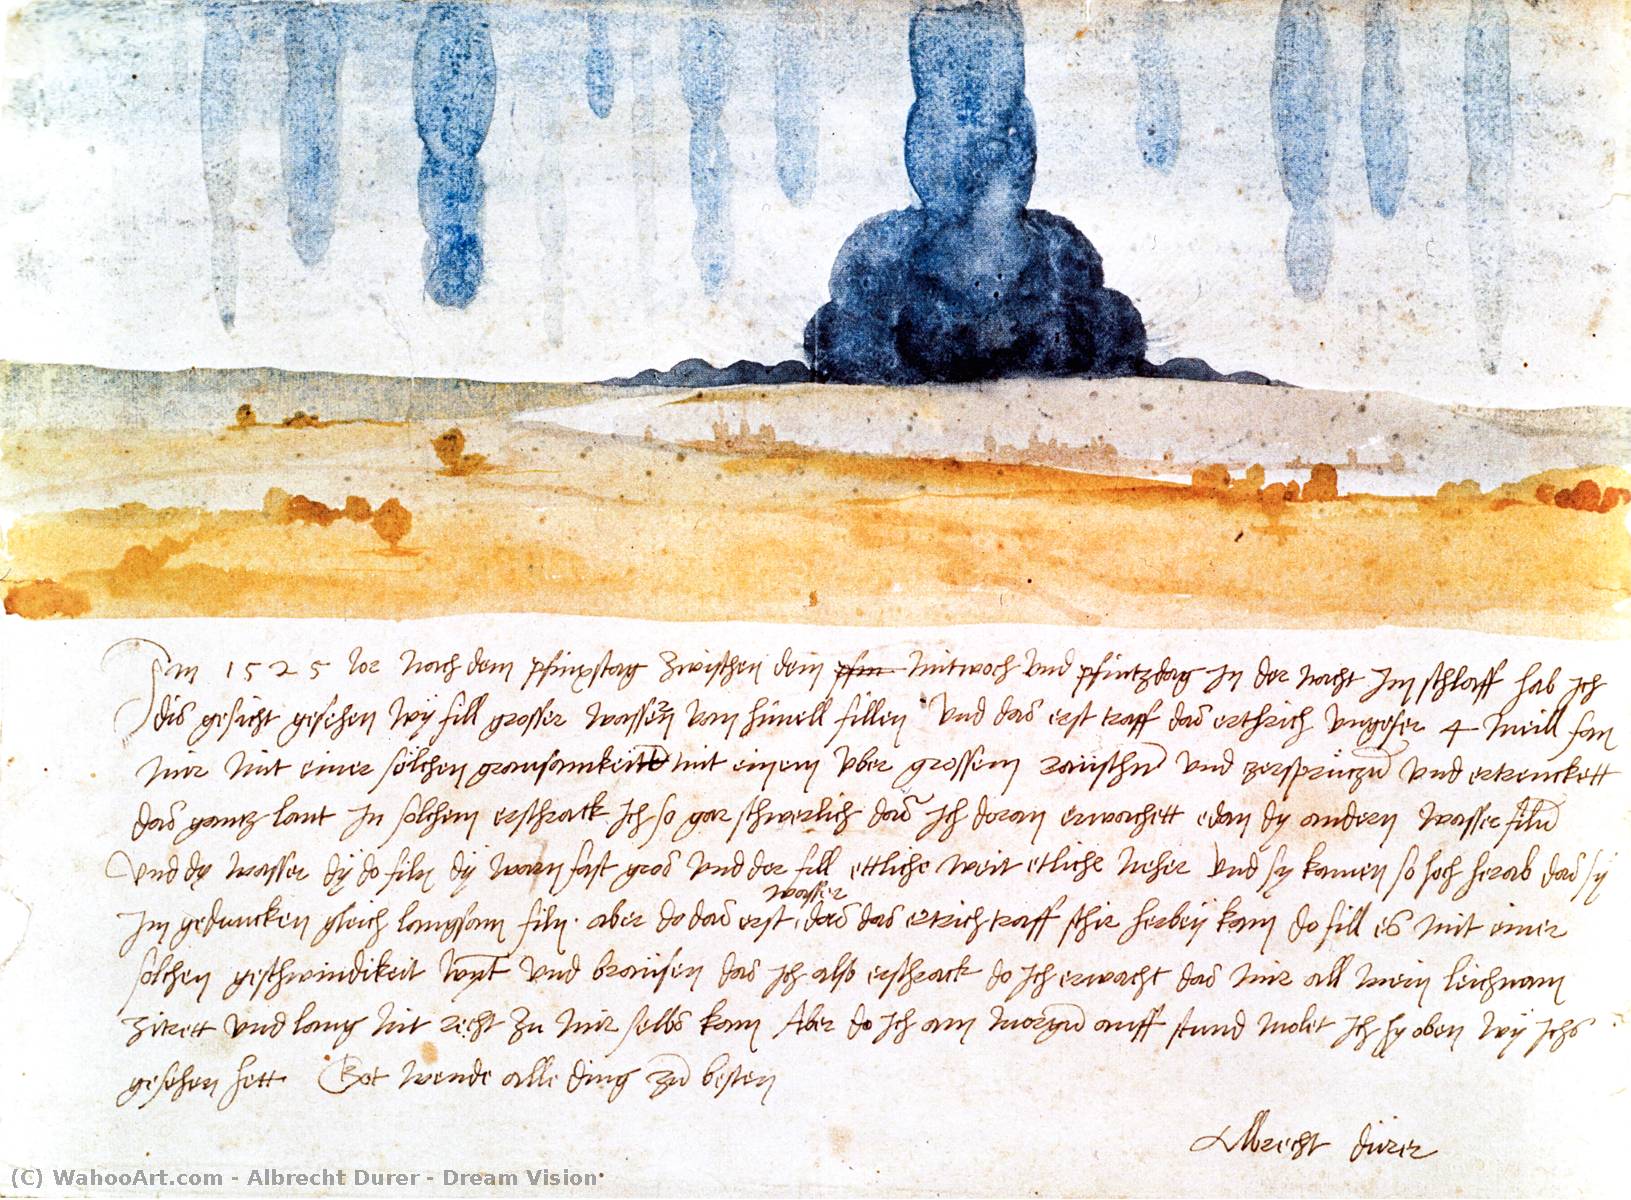 Im 1525 Jor nach dem pfinxstag zwischen dem pfin mitwoch und pfintzdag in der nacht im schlaff hab ich
dis gesicht gesehen wy fill grosser wassern van himell fillen Und das erst traff das erthrich ungefer 4 meill fan
mir mit einer sölchen grausamkeitt mit einem uber grossem raüschn und zersprützn und ertrenckett
das gantz lant In solchem erschrack ich so gar schwerlich das ich doran erwachett edan dy andern wasser filn
Und dy wasser dy do filn dy warn fast gros und der fill ettliche weit etliche neher und sy kamen so hoch herab das sy
im gedancken gleich langsam filn. aber do das erst wasser das das ertrich traff schir herbey kam do fill es mit einer
sölchen geschwindikeit wynt und braüsen das ich also erschrack do ich erwacht das mir all mein leichnam
zitrett und lang nit recht zu mir selbs kam Aber do ich am morgn auff stund molet ich hy oben wy ichs
gesehen hett Got wende alle ding zu besten
Albrecht dürer
(C) WahooArt.com - Albrecht Durer - Dream Vision